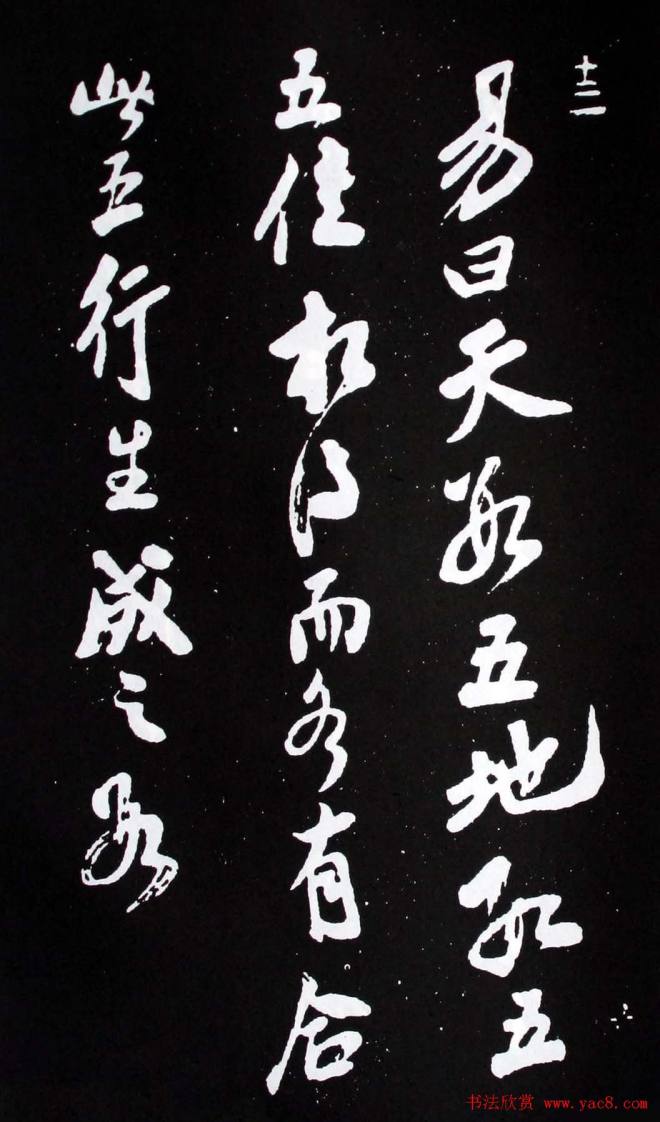 十二
易曰天數五地數五
五位相得而各有合
此五行生成之數
书法欣赏 www.yac8.com